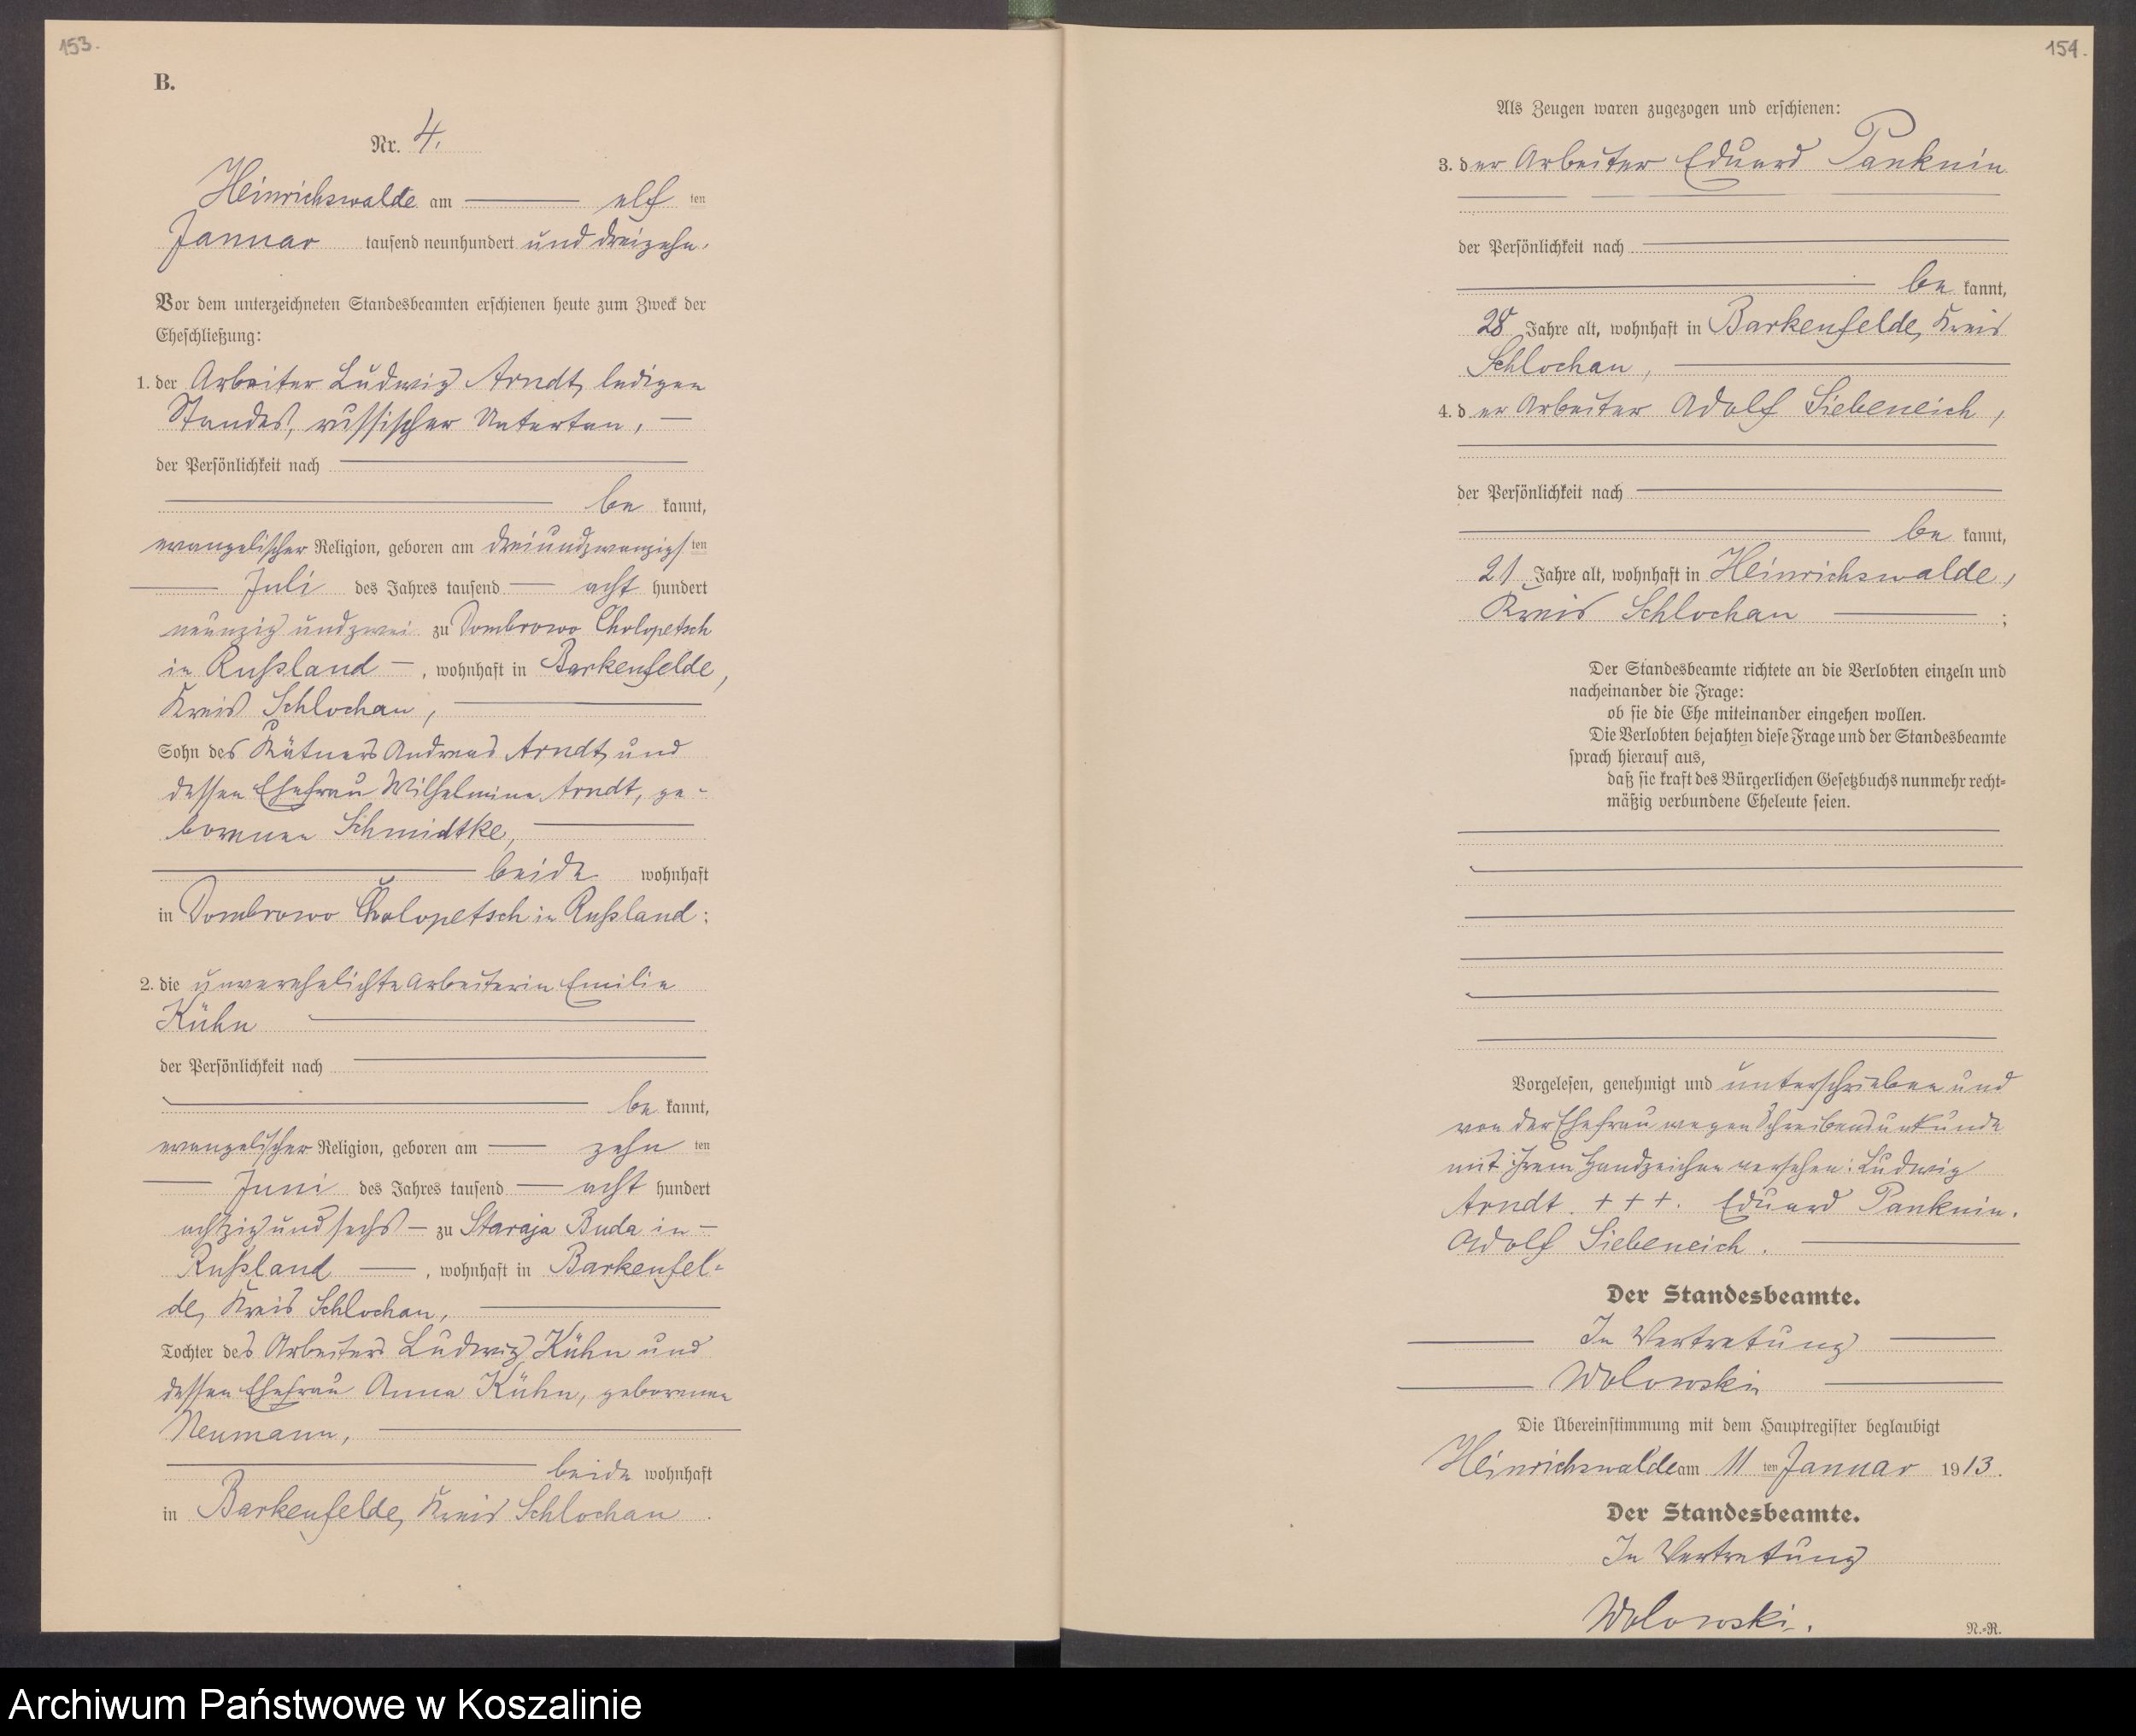 153.
B.
Nr. 4.
Heinrichswalde am elf ten
Januar tausend neunhundert und dreizehn.
Vor dem unterzeichneten Standesbeamten erschienen heute zum Zweck der
Eheschließung:
1. der Arbeiter Ludwig Arndt, ledigen
Standes, russischer Untertan, —
der Persönlichkeit nach
be kannt,
evangelischer Religion, geboren am dreiundzwanzigs ten
Juli des Jahres tausend acht hundert
neunzig und zwei zu Dombrowo Cholopetsch
in Rußland —, wohnhaft in Barkenfelde,
Kreis Schlochau,
Sohn des Kätners Andreas Arndt und
dessen Ehefrau Wilhelmine Arndt, ge-
borenen Schmidtke,
beide wohnhaft
in Dombrowo Cholopetsch in Rußland;
2. die unverehelichte Arbeiterin Emilie
Kühn
der Persönlichkeit nach
be kannt,
evangelischer Religion, geboren am zehn ten
Juni des Jahres tausend acht hundert
achtzig und sechs — zu Staraja Buda in —
Rußland —, wohnhaft in Barkenfel-
de, Kreis Schlochau,
Tochter des Arbeiters Ludwig Kühn und
dessen Ehefrau Anna Kühn, geborenen
Neumann,
beide wohnhaft
in Barkenfelde, Kreis Schlochau.
154.
Als Zeugen waren zugezogen und erschienen:
3. der Arbeiter Eduard Panknin
der Persönlichkeit nach
be kannt,
28 Jahre alt, wohnhaft in Barkenfelde, Kreis
Schlochau,
4. der Arbeiter Adolf Siebeneich,
der Persönlichkeit nach
be kannt,
21 Jahre alt, wohnhaft in Heinrichswalde,
Kreis Schlochau ;
Der Standesbeamte richtete an die Verlobten einzeln und
nacheinander die Frage:
ob sie die Ehe miteinander eingehen wollen.
Die Verlobten bejahten diese Frage und der Standesbeamte
sprach hierauf aus,
daß sie kraft des Bürgerlichen Gesetzbuchs nunmehr recht-
mäßig verbundene Eheleute seien.
Vorgelesen, genehmigt und unterschrieben und
von der Ehefrau wegen Schreibensunkunde
mit ihrem Handzeichen versehen: Ludwig
Arndt. + + +. Eduard Panknin.
Adolf Siebeneich.
Der Standesbeamte.
In Vertretung
Wolowski
Die Übereinstimmung mit dem Hauptregister beglaubigt
Heinrichswalde am 11 ten Januar 1913.
Der Standesbeamte.
In Vertretung
Wolowski.
N.-R.
Archiwum Państwowe w Koszalinie